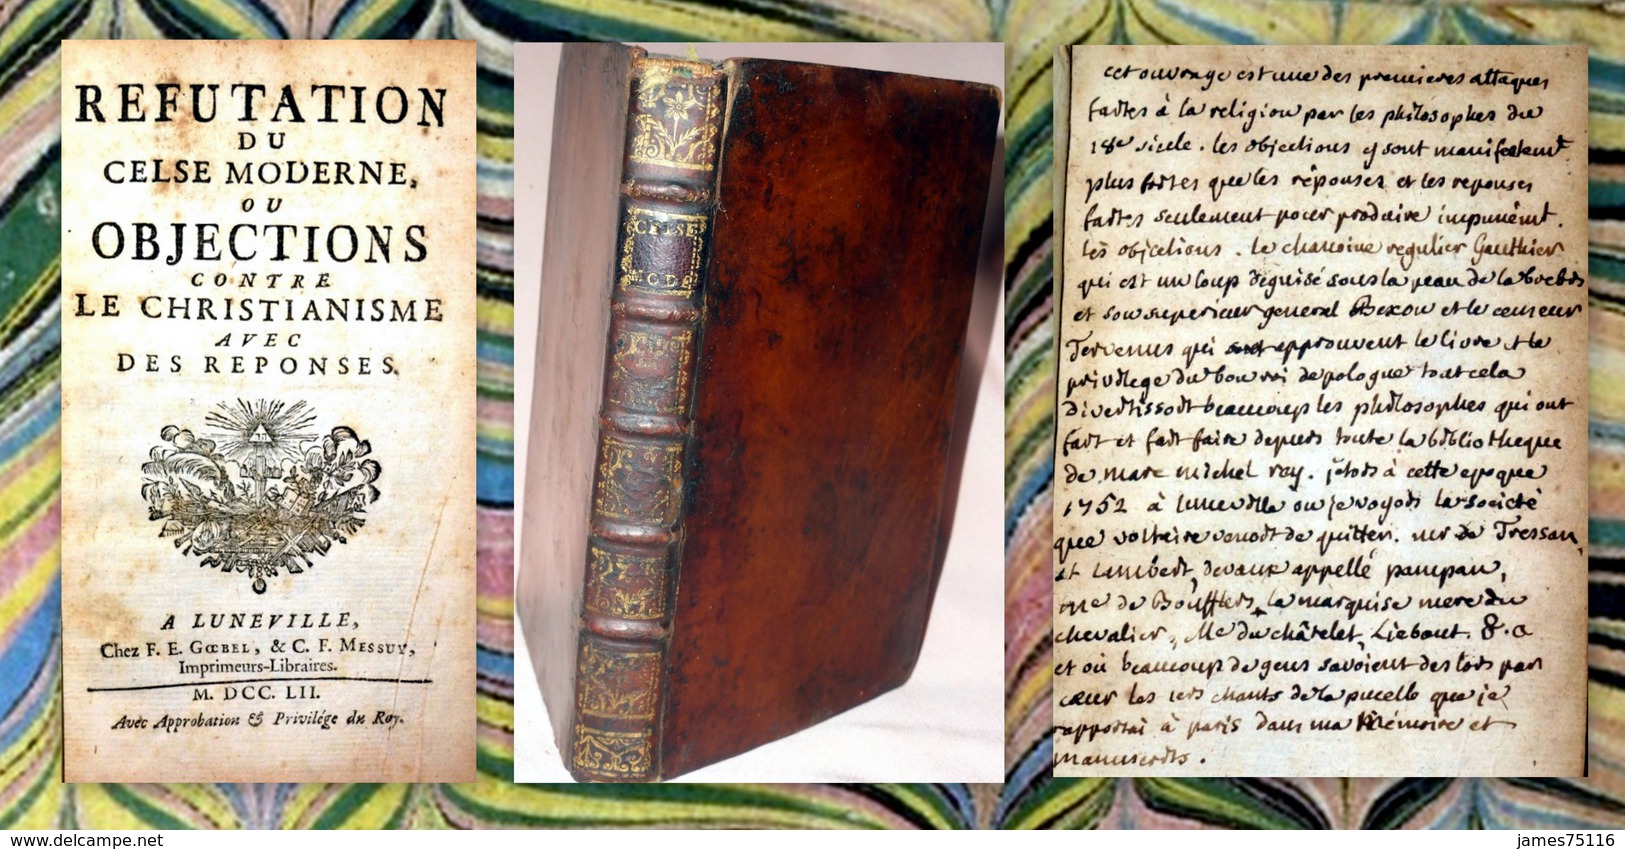 REFUTATION
DU
CELSE MODERNE,
OU
OBJECTIONS
CONTRE
LE CHRISTIANISME
AVEC
DES REPONSES.
A LUNEVILLE,
Chez F. E. GŒBEL, & C. F. MESSUY,
Imprimeurs-Libraires.
M. DCC. LII.
Avec Approbation & Privilége du Roy.
CELSE
MODE
cet ouvrage est une des premieres attaques
faites à la religion par les philosophes du
18e siecle. les objections y sont manifestemt
plus fortes que les réponses et les reponses
faites seulement pour produire impunémt.
les objections. le chanoine regulier Gauthier
qui est un loup déguisé sous la peau de la brebis
et son superieur general Bexon et le censeur
Tervenus qui approuvent le livre et le
privilege du bon roi de pologne tout cela
divertissoit beaucoup les philosophes qui ont
fait et fait faire depuis toute la bibliotheque
de marc michel rey. j'etois à cette epoque
1752 à luneville ou je voyois la société
que voltaire venoit de quitter. mr de Tressan,
et Lambert, devaux appellé panpan,
me de Boufflers, la marquise mere du
chevalier, Me du châtelet, Liebaut. &.a
et où beaucoup de gens savoient des lors par
cœur les 1ers chants de la pucelle que je
rapportai à paris dans ma Mémoire et
manuscrits.
© delcampe.net
james75116